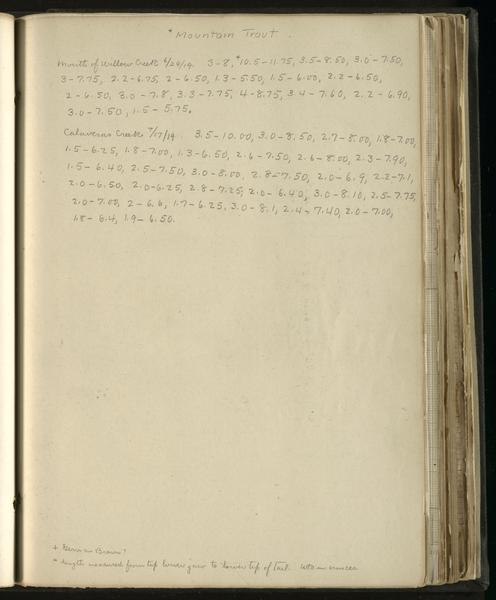 * Mountain Trout.
Mouth of Willow Creek 6/29/19. 3-8, +10.5-11.75, 3.5-8.50, 3.0-7.50,
3-7.75, 2.2-6.75, 2-6.50, 1.3-5.50, 1.5-6.00, 2.2-6.50,
2-6.50, 3.0-7.8, 3.3-7.75, 4-8.75, 3.4-7.60, 2.2-6.90,
3.0-7.50, 1.5-5.75.
Calaveras Creek 7/17/19. 3.5-10.00, 3.0-8.50, 2.7-8.00, 1.8-7.00,
1.5-6.25, 1.8-7.00, 1.3-6.50, 2.6-7.50, 2.6-8.00, 2.3-7.90,
1.5-6.40, 2.5-7.50, 3.0-8.00, 2.8-7.50, 2.0-6.9, 2.2-7.1,
2.0-6.50, 2.0-6.25, 2.8-7.25, 2.0-6.40, 3.0-8.10, 2.5-7.75,
2.0-7.00, 2-6.6, 1.7-6.25, 3.0-8.1, 2.4-7.40, 2.0-7.00,
1.8-6.4, 1.9-6.50.
+ German Brown?
* length measured from tip lower jaw to lower tip of tail. Wts in ounces